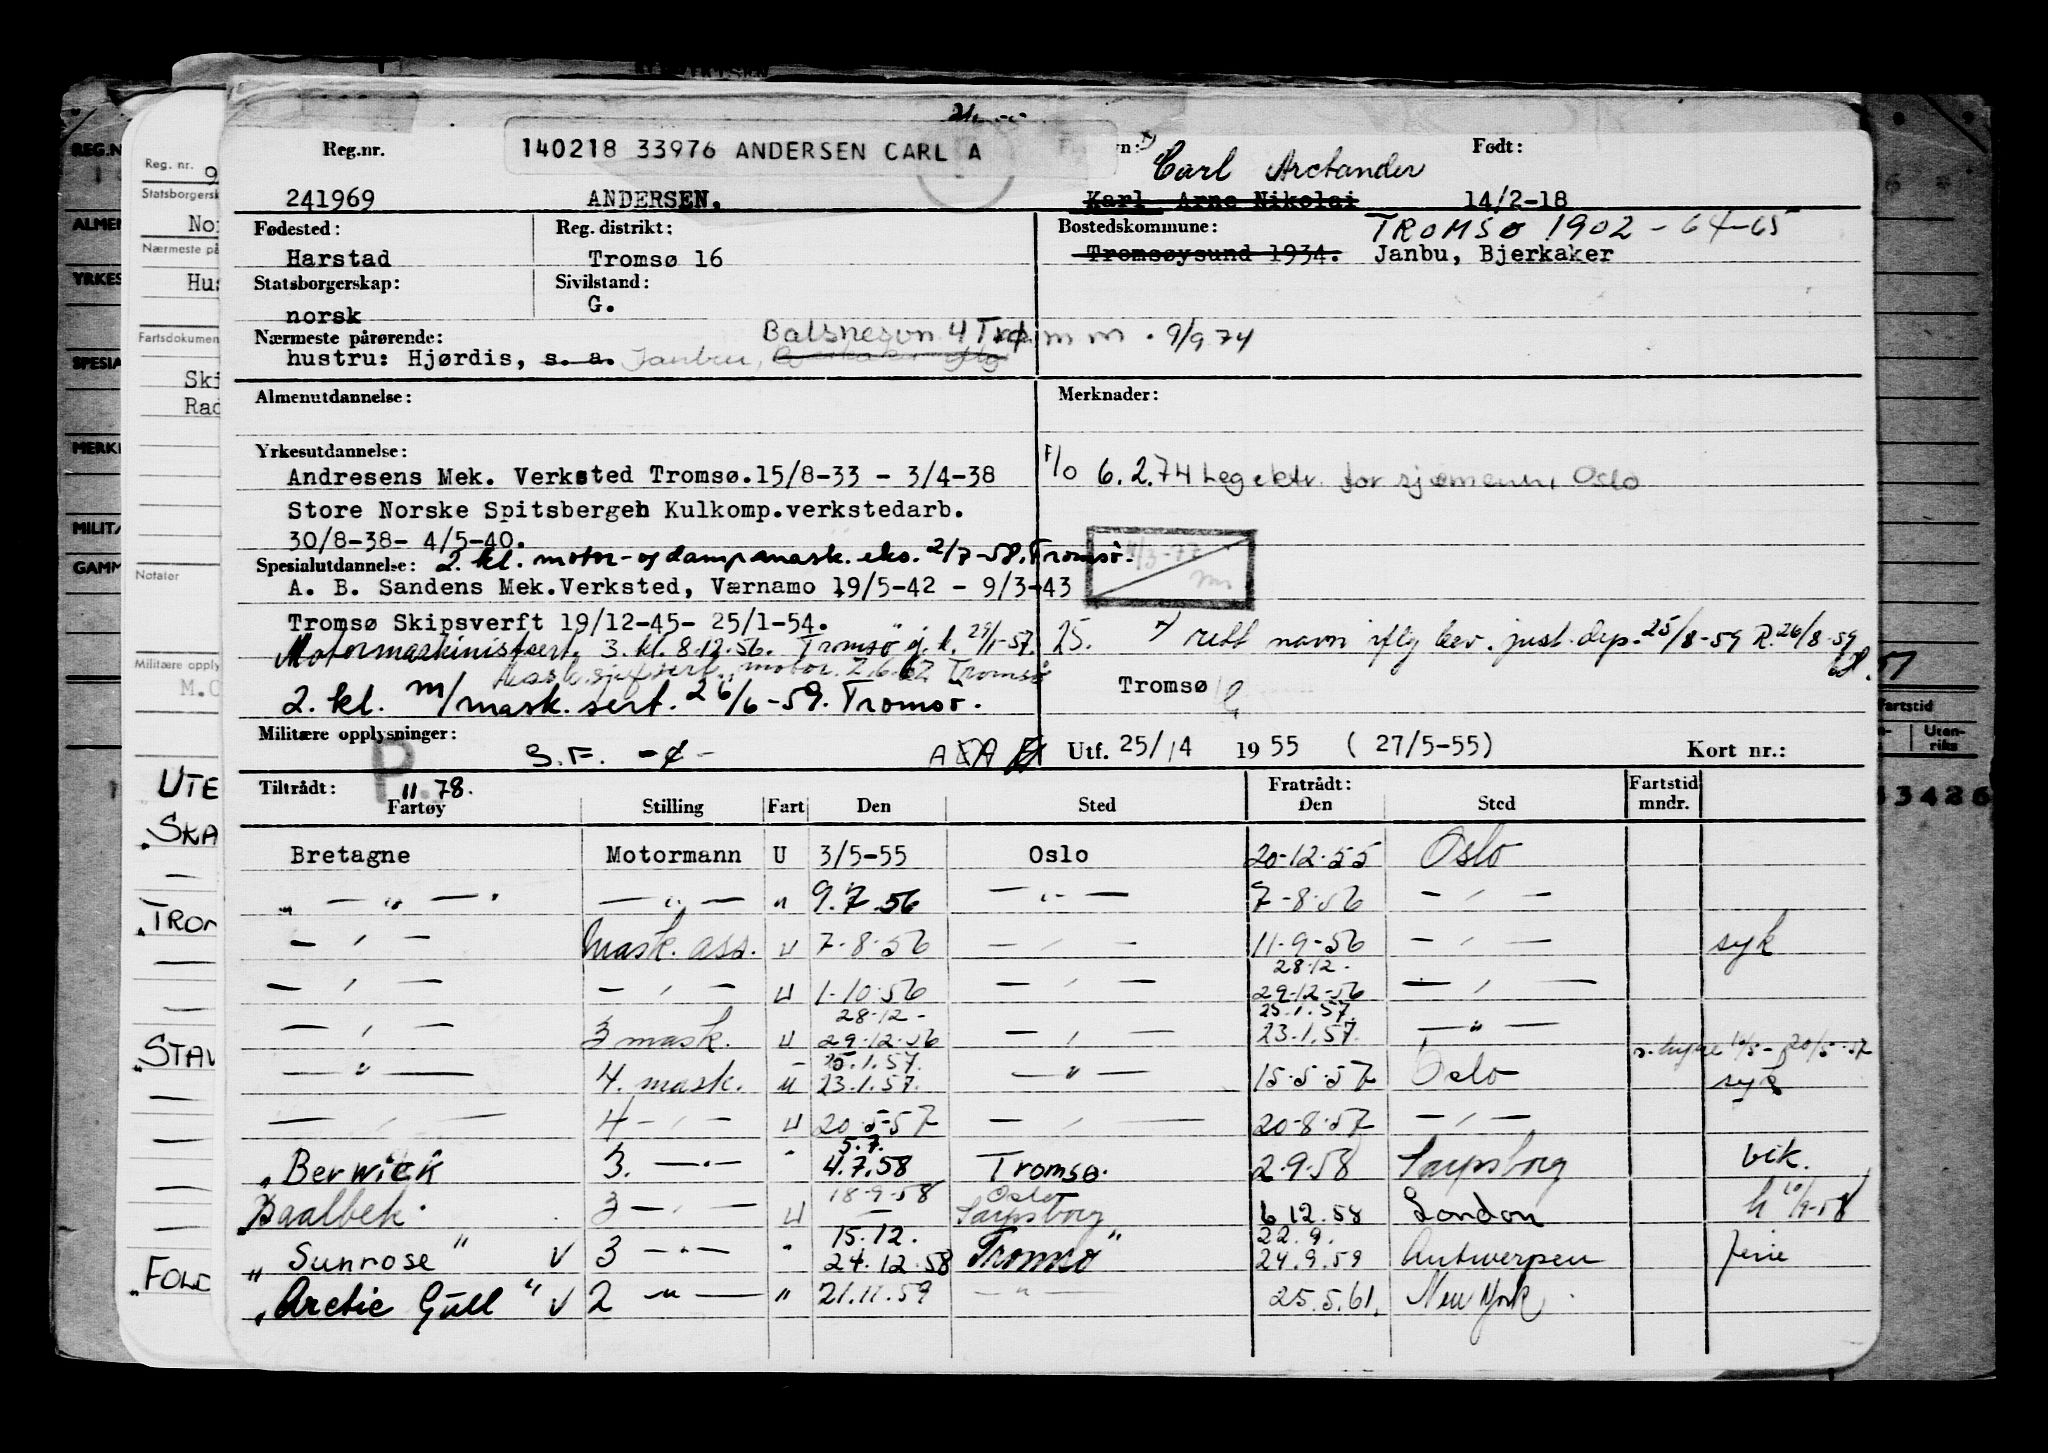 Reg.nr. 140218 33976 ANDERSEN CARL A Født:
Carl Arctander
241969 ANDERSEN, Karl Arne Nikolai 14/2-18
Fødested: Reg. distrikt: Bostedskommune: TROMSØ 1902 - 64-65
Harstad Tromsø 16 Tromsøysund 1934. Janbu, Bjerkaker
Statsborgerskap: Sivilstand:
norsk G.
Nærmeste pårørende: Balsnesvn 4 Trø m m . 9/9 74
hustru: Hjørdis, s. a. Janbu,
Almenutdannelse: Merknader:
Yrkesutdannelse:
Andresens Mek. Verksted Tromsø. 15/8-33 - 3/4-38 F/O 6.2.74 Legektr. for sjømenn, Oslo
Store Norske Spitsbergen Kulkomp.verkstedarb.
30/8-38- 4/5-40.
Spesialutdannelse: 2. kl. motor- og dampmask. eks. 2/7-58. Tromsø.
A. B. Sandens Mek.Verksted, Værnamo 19/5-42 - 9/3-43
Tromsø Skipsverft 19/12-45- 25/1-54.
Motormaskinistsert. 3. kl. 8.12.56. Tromsø g. k. 29/1-57. 25. rett navn iflg bev. just. dep. 25/8-59 R. 26/8-59
motor. 7.6.62 Tromsø
2. kl. m/mask. sert. 26/6-59. Tromsø. Tromsø
Militære opplysninger: S.F. Utf. 25/4 1955 (27/5-55) Kort nr.:
P. 11.78.
Tiltrådt: Fratrådt: Fartstid
Fartøy Stilling Fart Den Sted Den Sted mndr.
Bretagne Motormann U 3/5-55 Oslo 20-12-55 Oslo
" — " — — " — " 9.7.56 — " — 7-8-56 — " —
— " — Mask. ass. U 7-8-56 — " — 11-9-56 — " — syk
28-12-
— " — — " — U 1-10-56 — " — 29-12-56 — " —
28-12- 25.1.57.
— " — 3 mask. U 29-12-56 — " — 23.1.57. — " —
25.1.57.
— " — 4. mask. U 23.1.57. — " — 15-5-57 Oslo syk
— " — 4 — " — U 20-5-57 — " — 20-8-57 — " —
5.7.
"Berwick" 3. — " — " 4.7.58 Tromsø. 2-9-58 Sarpsborg vik.
18-9-58 Oslo
Baalbek. 3 — " — U — Sarpsborg 6.12.58 London
15.12. 22.9.
"Sunrose" V 3 — " — " 24.12.58 Tromsø 24.9.59 Antwerpen ferie
"Arctic Gull" V 2 — " — " 21.11.59 — " — 25.5.61. New York
Reg. nr. 9
Statsborgersk
Nor
Nærmeste på
Hus
Fartsdokumen
Ski
Rad
Notater
Militære opply
M.C
UTE
SKA
TROM
STAV
FOLD
REG.N
ALMEN
YRKES
SPESIA
MERK
MILIT
GAMM
Fartstid
Uten-
riks
3426